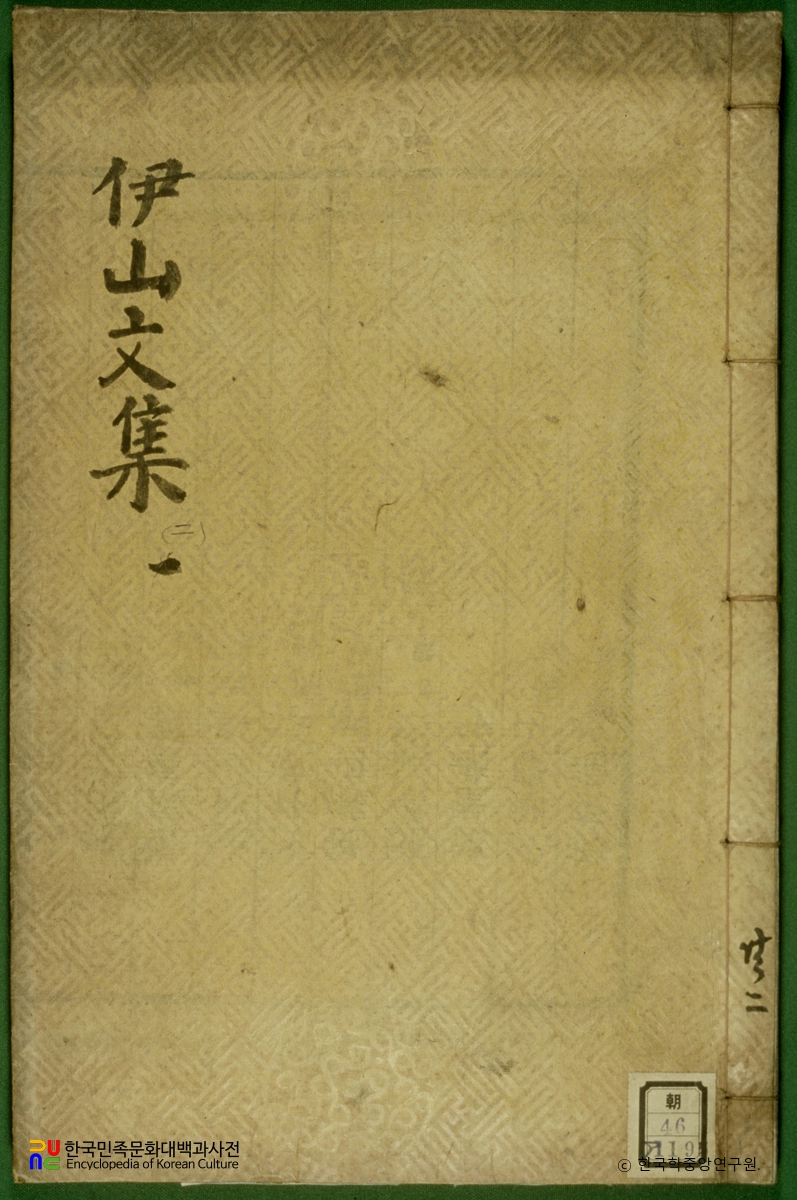 伊山文集
(二)
一
共二
朝
46
한국민족문화대백과사전
Encyclopedia of Korean Culture
© 한국학중앙연구원.